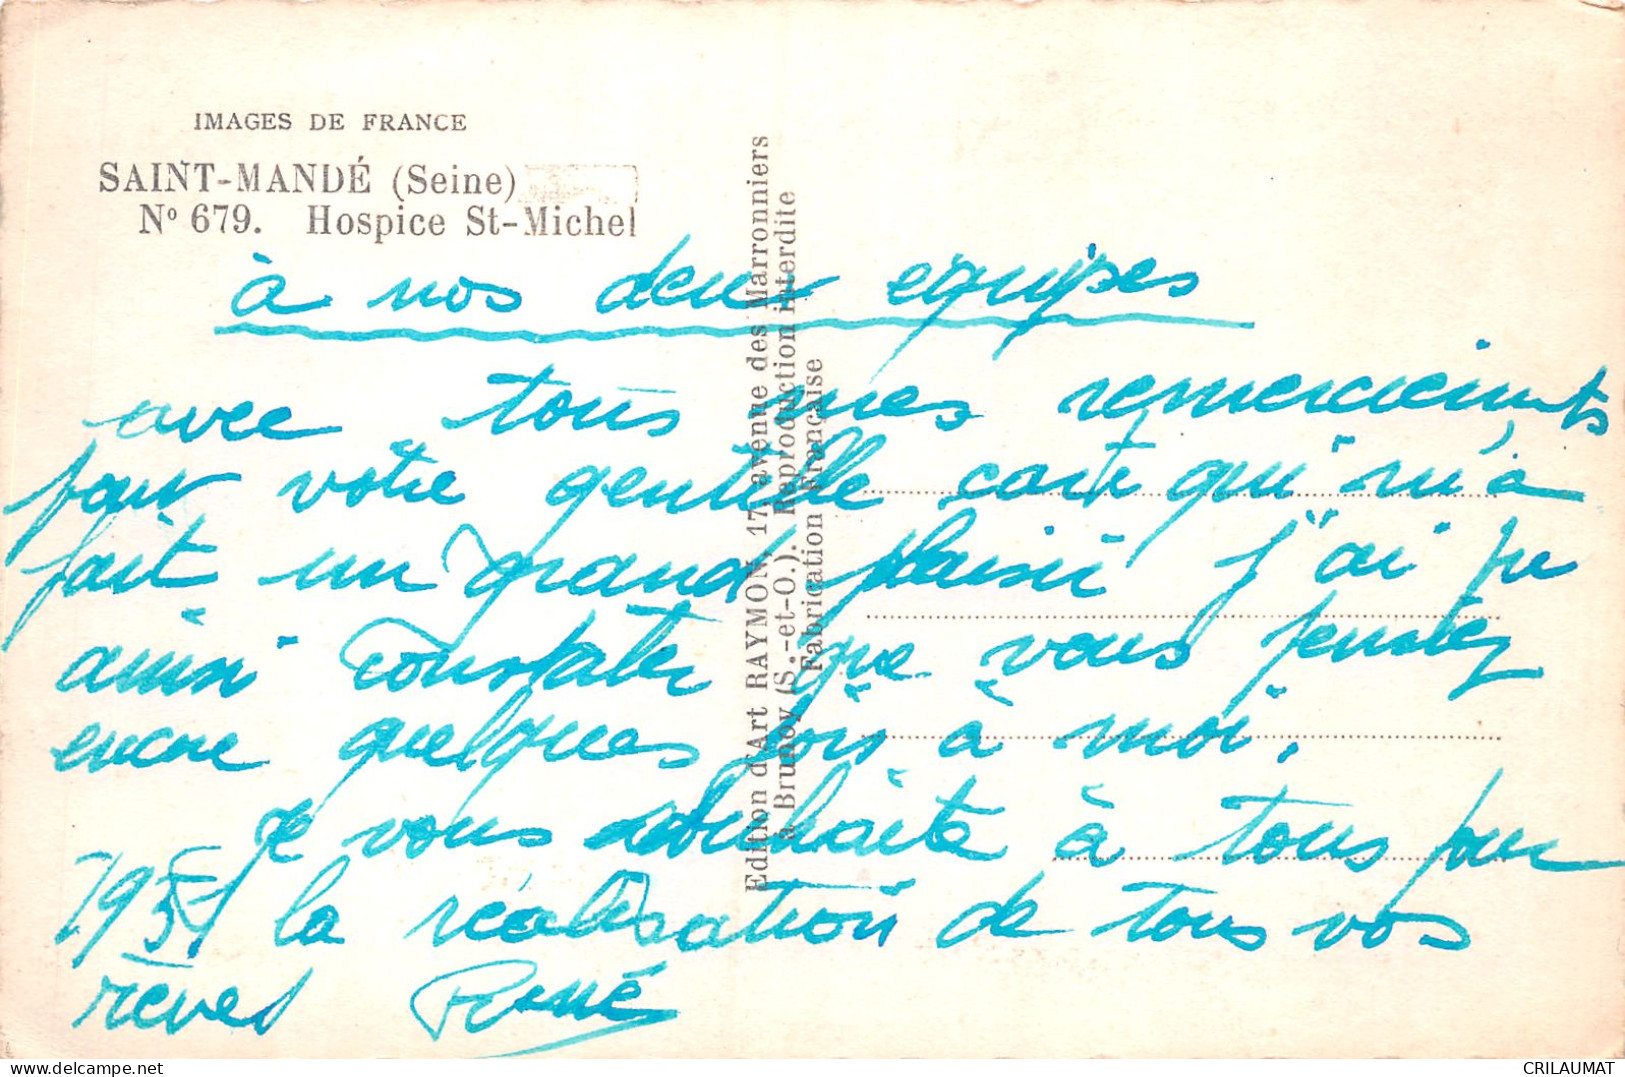 IMAGES DE FRANCE
SAINT-MANDÉ (Seine)
Nº 679. Hospice St-Michel
à nos deux equipes
avec tous mes remerciements
pour votre gentille carte qui m'a
fait un grand plaisir j'ai pu
ainsi constater que vous pensiez
encore quelques fois à moi.
Je vous souhaite à tous pour
1951 la réalisation de tous vos
rêves René
Edition d'Art RAYMON, 17, avenue des Marronniers
à Brunoy (S.-et-O.). Reproduction interdite
Fabrication Française
CRILAUMAT